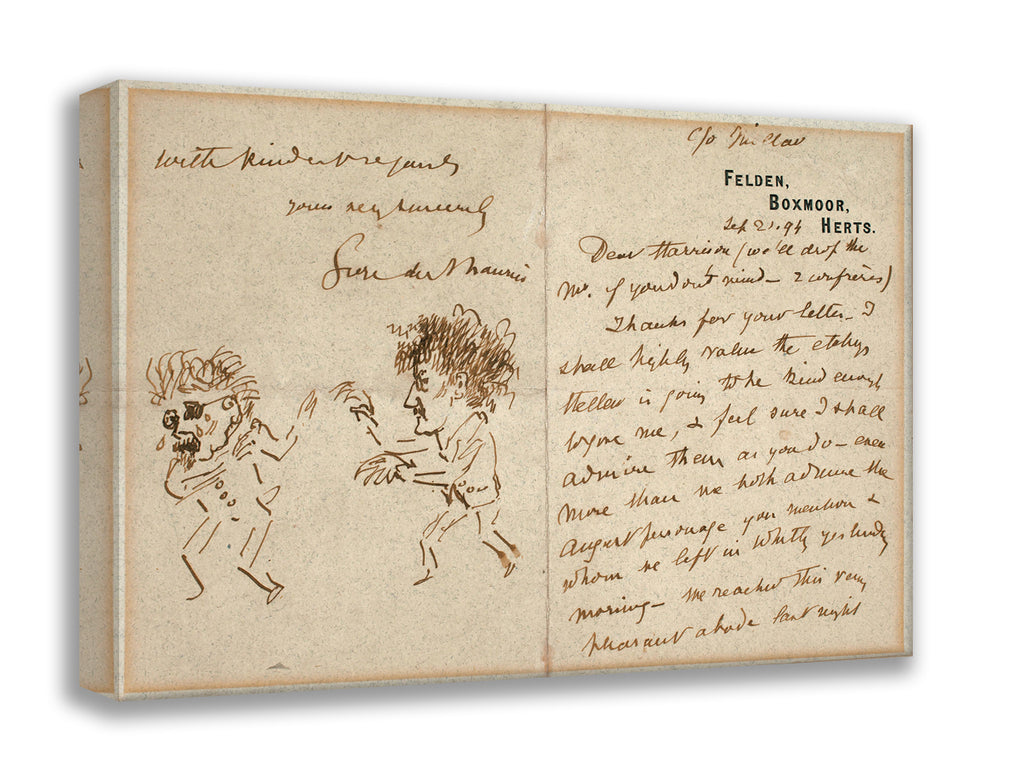 with kindest regards
yours very sincerely
George du Maurier
c/o
FELDEN,
BOXMOOR,
HERTS.
Sep 21. 94
Dear Harrison (we'll drop the
Mr. if you don't mind – 2 confrères)
Thanks for your letter – I
shall highly value the etchings
Helleu is going to be kind enough
to give me, & feel sure I shall
admire them as you do – even
more than we both admire the
august personage you mention &
whom we left in Whitby yesterday
morning – We reached this very
pleasant abode last night